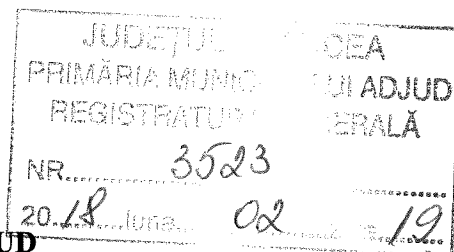 JUDEȚUL CEA
PRIMĂRIA MUNIC UI ADJUD
REGISTRATU ERALĂ
NR. 3523
20.18 luna 02 19
UD